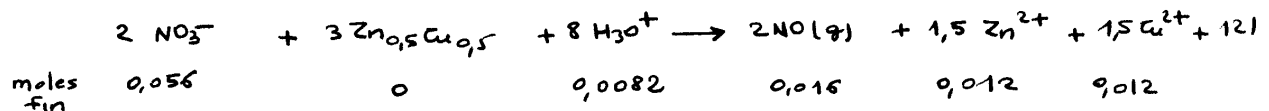 2 NO₃⁻ + 3 Zn₀,₅ Cu₀,₅ + 8 H₃O⁺ ⟶ 2 NO(g) + 1,5 Zn²⁺ + 1,5 Cu²⁺ + 12
moles 0,056 0 0,0082 0,016 0,012 0,012
fin